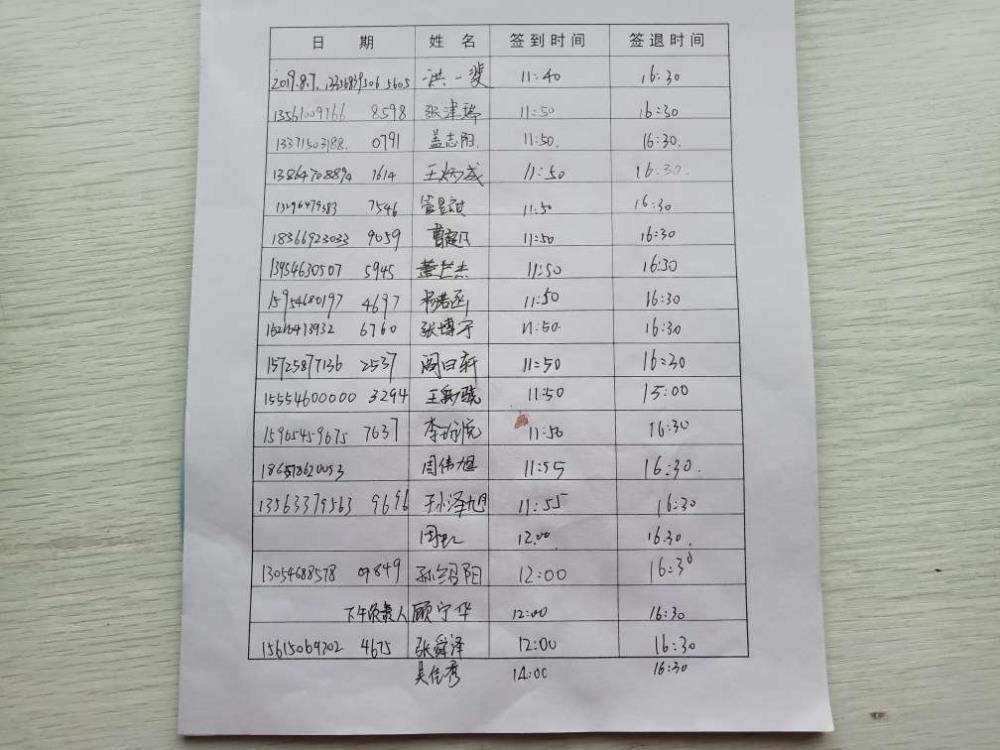 日 期 姓 名 签到时间 签退时间
2019.8.7. 13356839506 5605 洪一斐 11:40 16:30
13561009766 8598 张津瑞 11:50 16:30
13371503188. 0791 盖志刚. 11:50. 16:30.
13864708894 1614 王炳成 11:50 16:30.
7546 11:50 16:30
18366923033 9059 11:50 16:30
13954630507 5945 董芒杰 11:50 16:30
15954680197 4697 杨若函 11:50 16:30
6760 张博宇 11:50. 16:30
15725877136 2537 阎曰轩 11:50 16:30
15554600000 3294 王新骁 11:50 15:00
15965459675 7637 11:50 16:30
周伟旭 11:55 16:30.
13563379563 9696 于泽旭 11:55 16:30
12:00. 16:30.
13054688578 0849 孙绍阳 12:00 16:30
下午负责人 顾宁华 12:00 16:30
15615069202 4675 张舜泽 12:00 16:30
吴佳秀 14:00 16:30